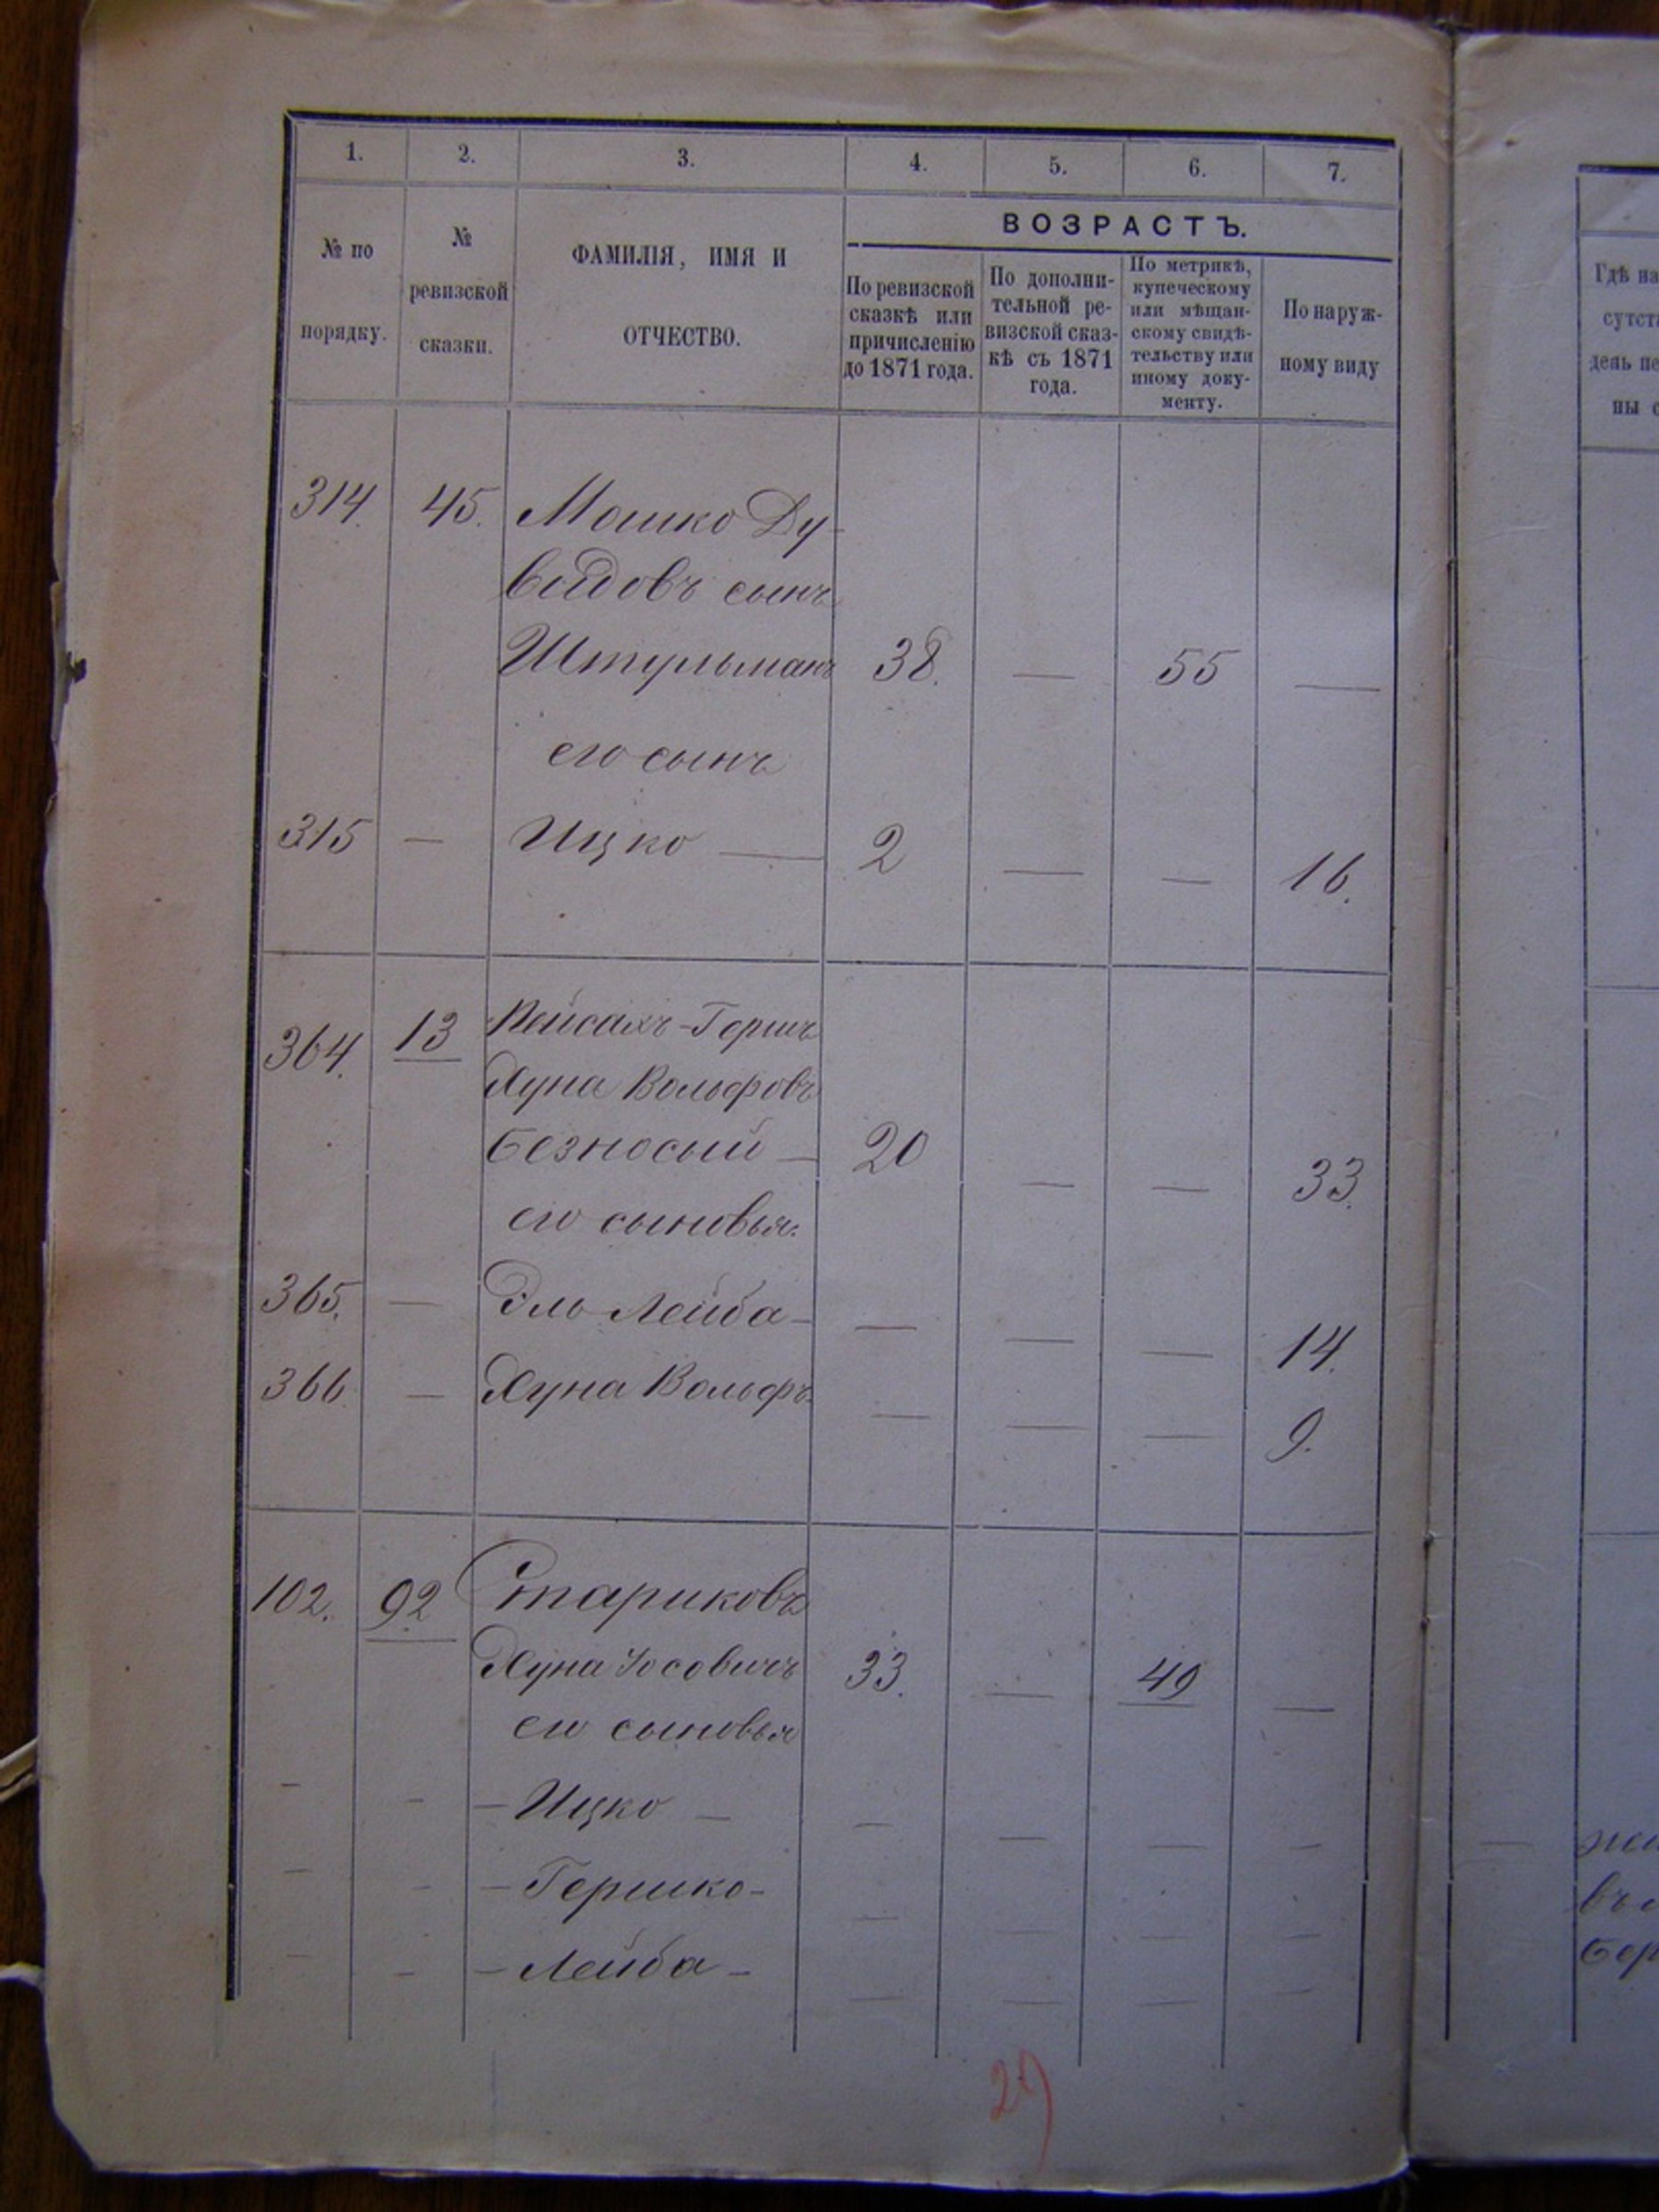 1. 2. 3. 4. 5. 6. 7.
№ по порядку.
№ ревизской сказки.
ФАМИЛІЯ, ИМЯ И
ОТЧЕСТВО.
ВОЗРАСТЪ.
По ревизской
сказкѣ или
причисленію
до 1871 года.
По дополни-
тельной ре-
визской сказ-
кѣ съ 1871
года.
По метрикѣ,
купеческому
или мѣщан-
скому свидѣ-
тельству или
иному доку-
менту.
По наруж-
ному виду
314. 45. Мошко Ду-
видовъ сынъ
Штульманъ 38. — 55 —
его сынъ
315 — Ицко — 2 — — 16.
364. 13 Пейсахъ-Гершъ
Хуна Вольфовъ
Безносый — 20 — — 33.
его сыновья:
365. — Эль Лейба — — — — 14.
366. — Хуна Вольфъ. — — — 9.
102. 92 Стариковъ
Хуна Іосовичъ 33. — 49 —
его сыновья
- - — Ицко — — — — -
- - — Гершко - — — — -
- - — Лейба - — — — -
29
Гдѣ на
сутст
день
ны
въ